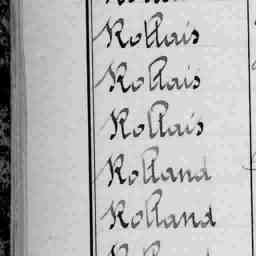 Rollais
Rollais
Rollais
Rolland
Rolland